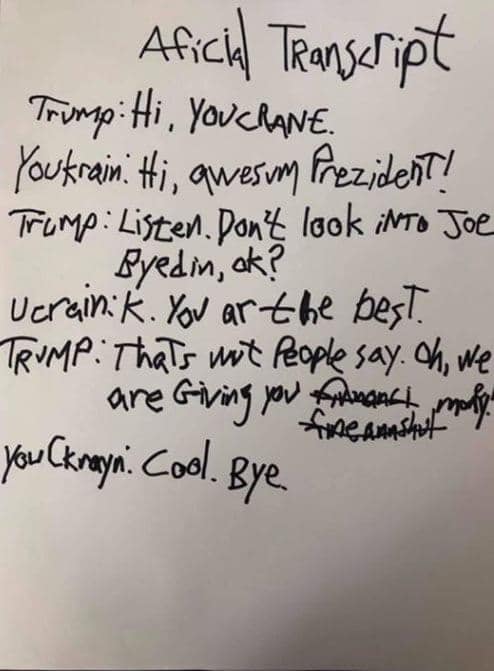 Aficial Transcript
Trump: Hi, YOUCRANE.
Youkrain: Hi, awesum PrezidenT!
Trump: Listen. Don't look iNTO Joe
Byedin, ok?
Ucrain: K. You ar the besT.
TRUMP: ThaTs wut People say. Oh, we
are Giving you mony!
YouCkrayn: Cool. Bye.